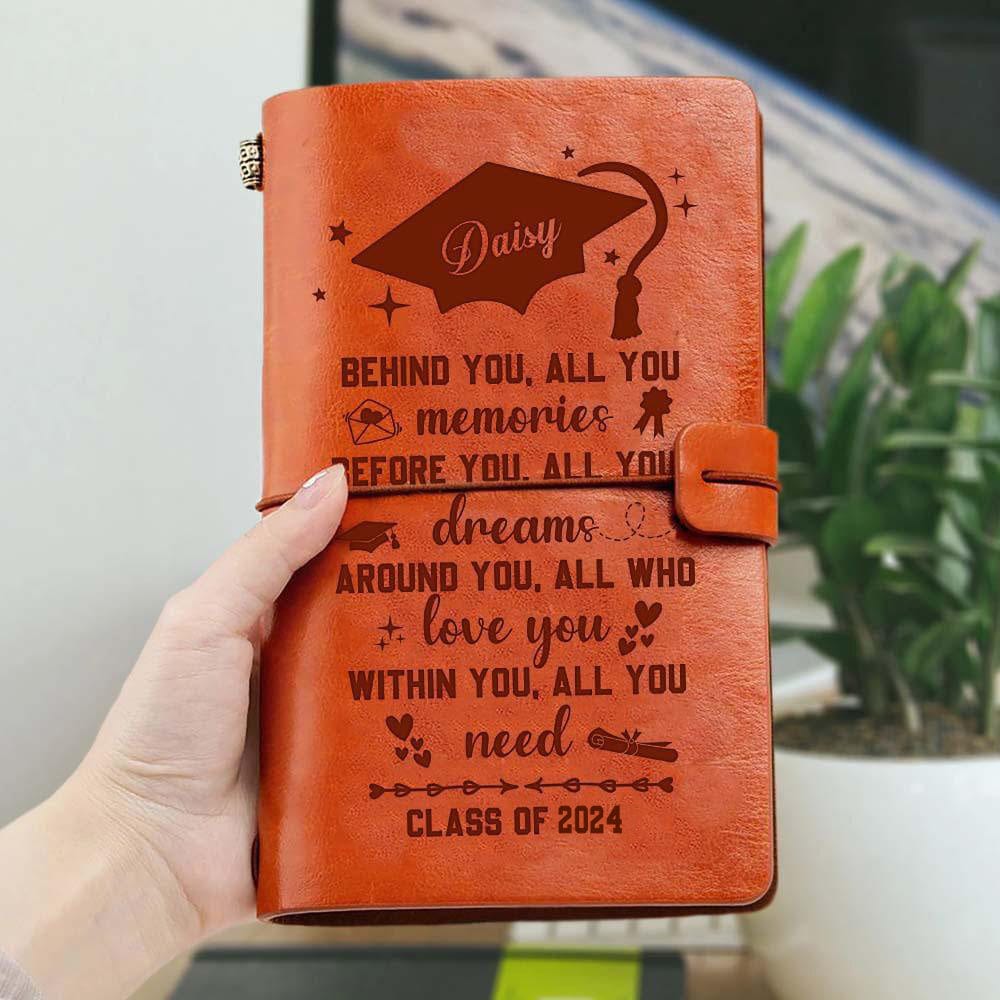 Daisy
BEHIND YOU, ALL YOU
memories
BEFORE YOU, ALL YOU
dreams
AROUND YOU, ALL WHO
love you
WITHIN YOU, ALL YOU
need
CLASS OF 2024